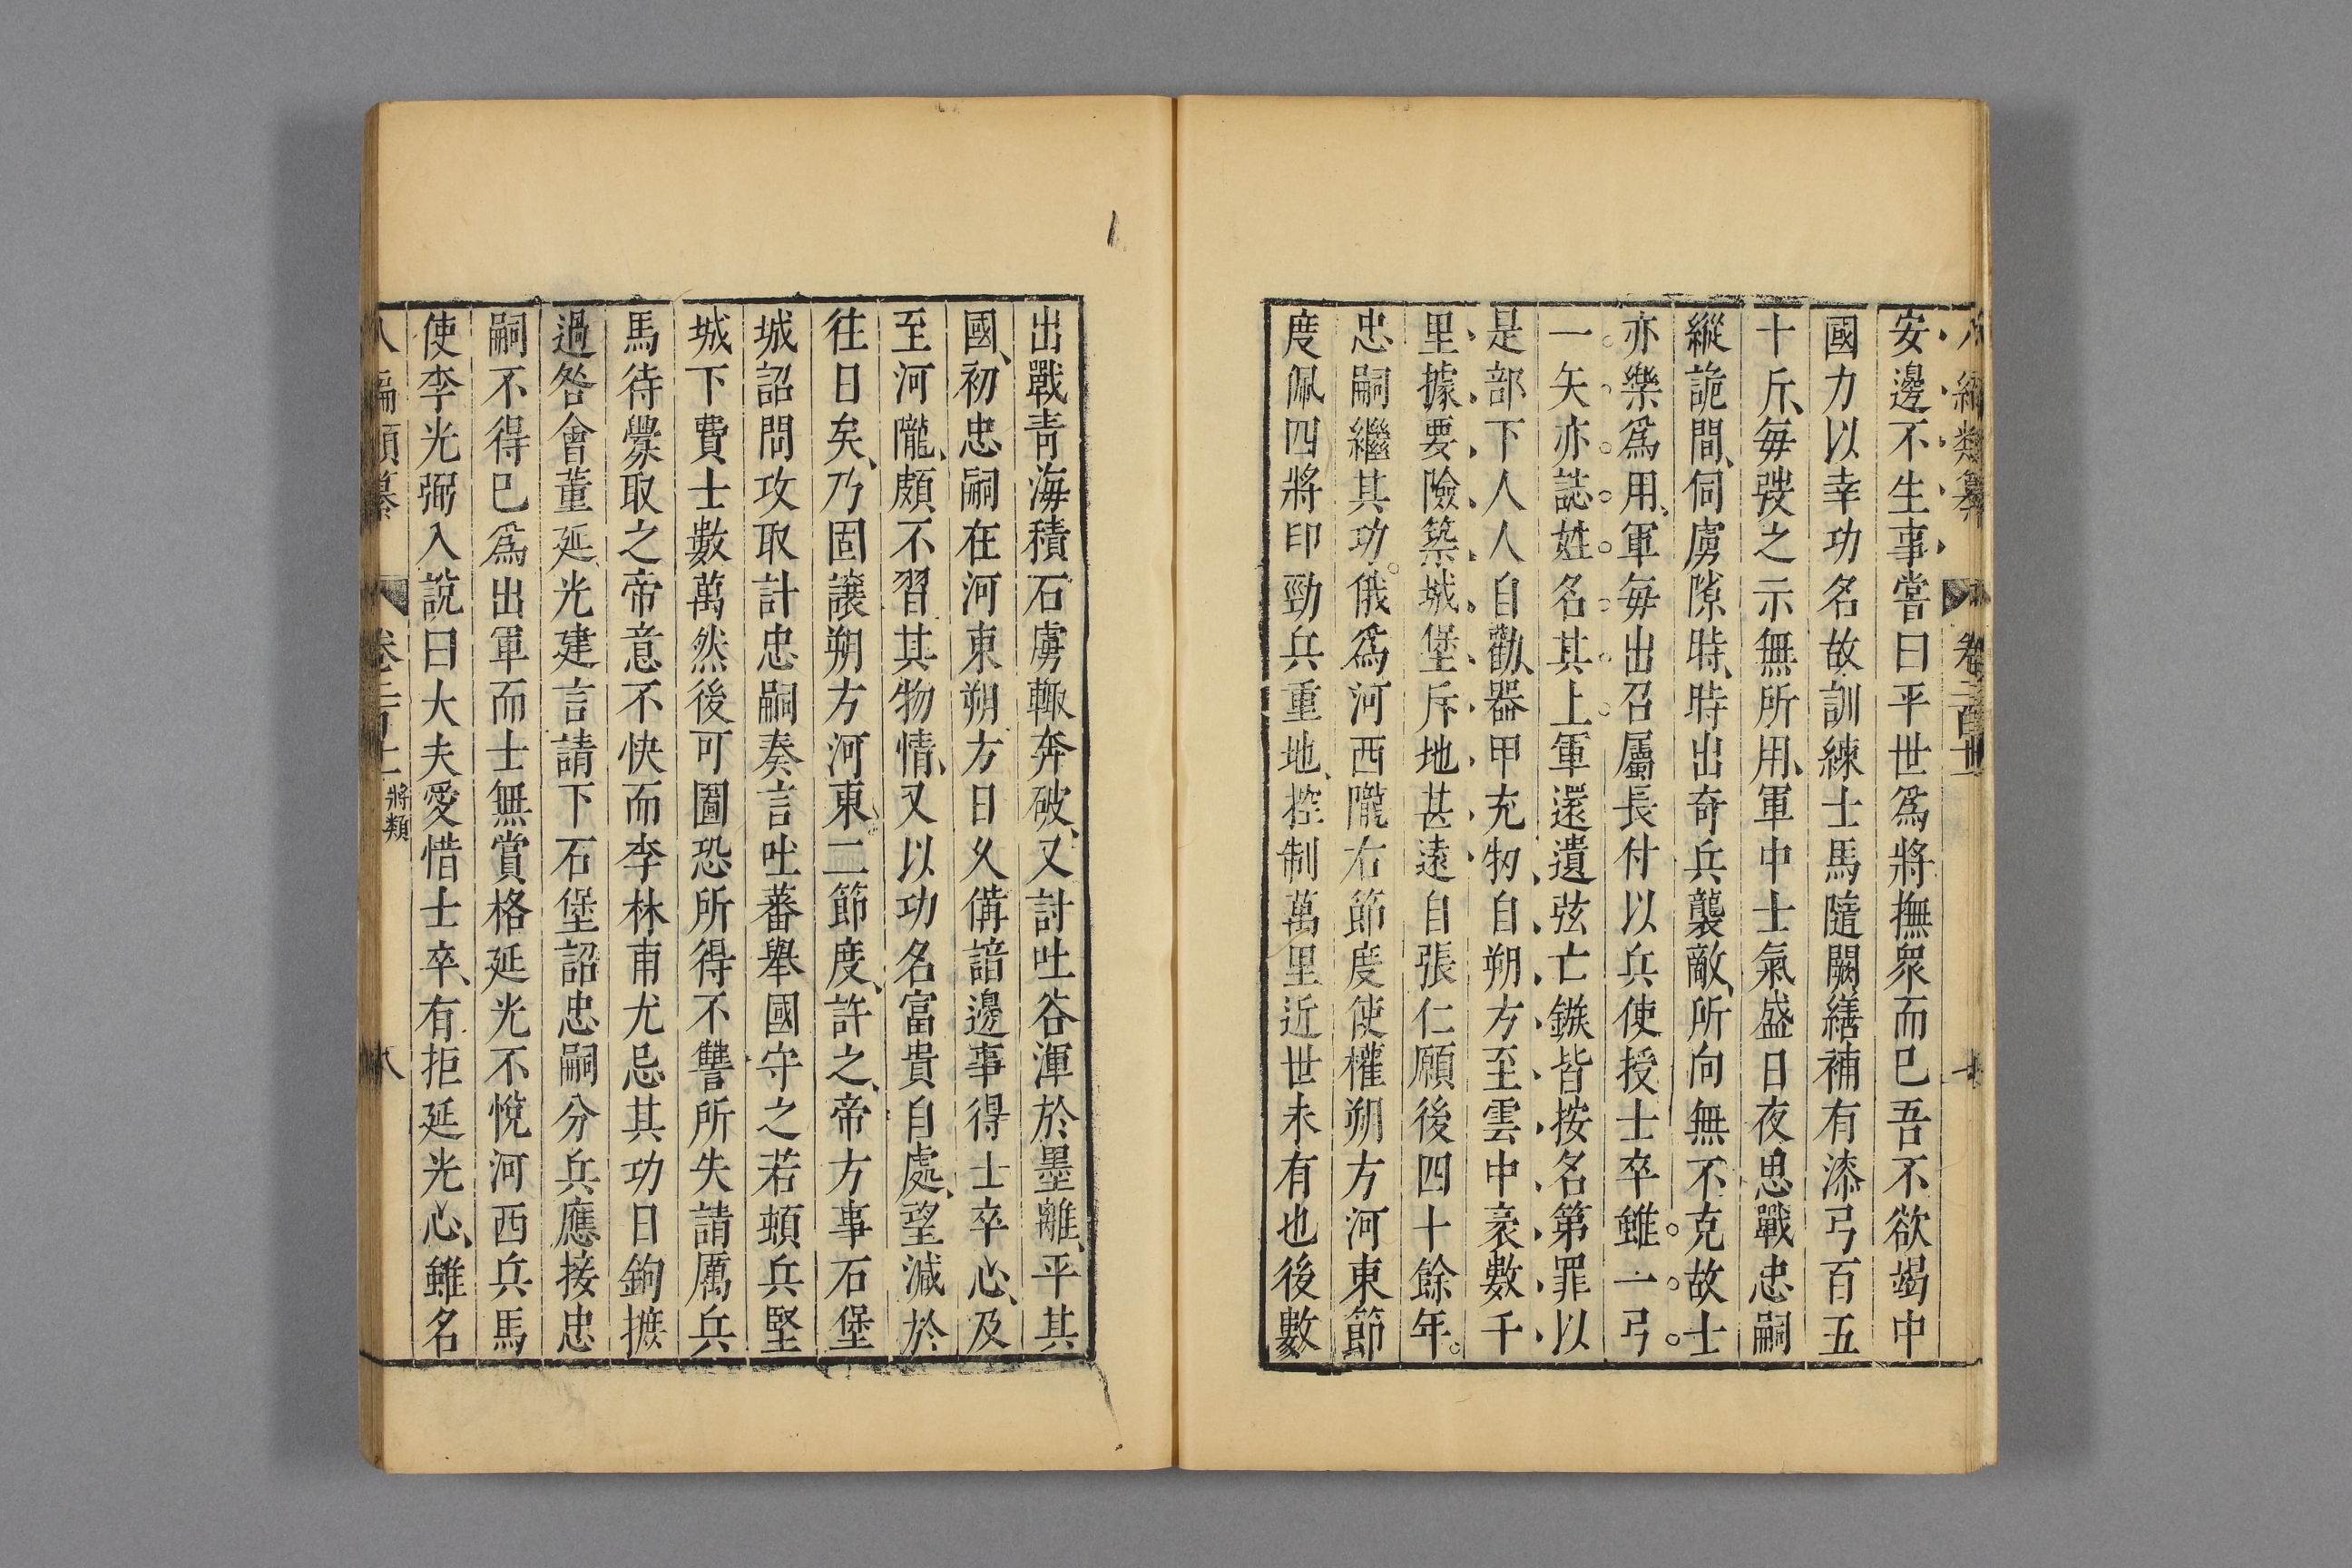 安邊不生事嘗曰平世爲將撫衆而已吾不欲竭中
國力以幸功名故訓練士馬隨闕繕補有漆弓百五
十斤每弢之示無所用軍中士氣盛日夜思戰忠嗣
縱詭間伺虜隙時時出奇兵襲敵所向無不克故士
亦樂爲用軍每出召屬長付以兵使授士卒雖一弓
一矢亦誌姓名其上軍還遺弦亡鏃皆按名第罪以
是部下人人自勸器甲充牣自朔方至雲中袤數千
里據要險築城堡斥地甚遠自張仁願後四十餘年
忠嗣繼其功俄爲河西隴右節度使權朔方河東節
度佩四將印勁兵重地控制萬里近世未有也後數
出戰青海積石虜輒奔破又討吐谷渾於墨離平其
國初忠嗣在河東朔方日久備諳邊事得士卒心及
至河隴頗不習其物情又以功名富貴自處望減於
往日矣乃固讓朔方河東二節度許之帝方事石堡
城詔問攻取計忠嗣奏言吐蕃舉國守之若頓兵堅
城下費士數萬然後可圖恐所得不讐所失請厲兵
馬待釁取之帝意不快而李林甫尤忌其功日鉤摭
過咎會董延光建言請下石堡詔忠嗣分兵應接忠
嗣不得已爲出軍而士無賞格延光不悅河西兵馬
使李光弼入說曰大夫愛惜士卒有拒延光心雖名
將類